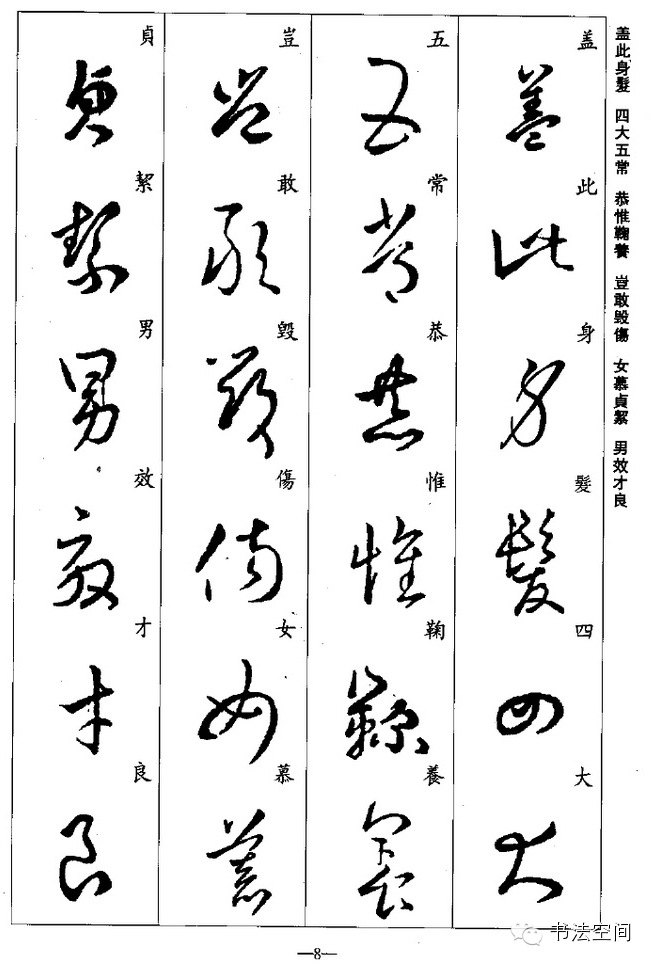 盖此身髮 四大五常 恭惟鞠養 豈敢毀傷 女慕貞絜 男效才良
盖此身髮四大
五常恭惟鞠養
豈敢毀傷女慕
貞絜男效才良
—8—
书法空间